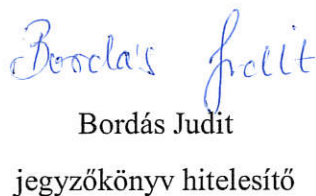 Bordás Judit
Bordás Judit
jegyzőkönyv hitelesítő